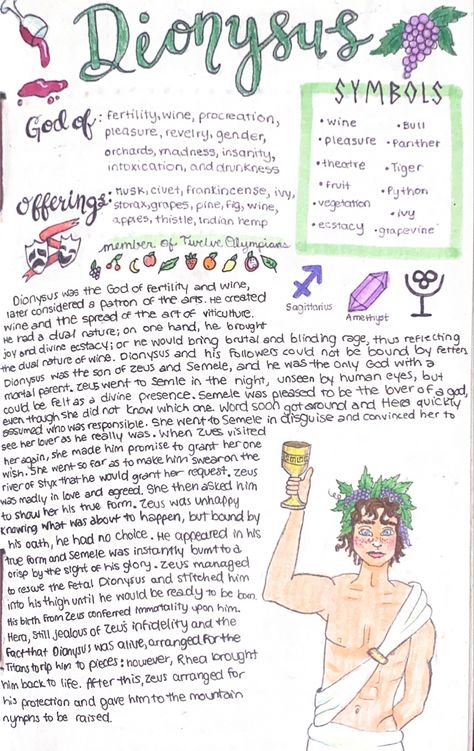 Dionysus
God of: fertility, wine, procreation,
pleasure, revelry, gender,
orchards, madness, insanity,
intoxication, and drunkness
SYMBOLS
• wine
• pleasure
• theatre
• fruit
• vegetation
• ecstacy
• Bull
• Panther
• Tiger
• Python
• ivy
• grapevine
Offerings: Musk, civet, frankincense, ivy,
storax, grapes, pine, fig, wine,
apples, thistle, indian hemp
member of Twelve Olympians
Sagittarius
Amethyst
Dionysus was the God of fertility and wine,
later considered a patron of the arts. He created
wine and the spread of the art of viticulture.
He had a dual nature; on one hand, he brought
joy and divine ecstacy; or he would bring brutal and blinding rage, thus reflecting
the dual nature of wine. Dionysus and his followers could not be bound by fetters.
Dionysus was the son of Zeus and Semele, and he was the only God with a
mortal parent. Zeus went to Semle in the night, unseen by human eyes, but
could be felt as a divine presence. Semele was pleased to be the lover of a god,
even though she did not know which one. Word soon got around and Hera quickly
assumed who was responsible. She went to Semele in disguise and convinced her to
see her lover as he really was. When Zues visited
her again, she made him promise to grant her one
wish. She went so far as to make him swear on the
river of Styx that he would grant her request. Zeus
was madly in love and agreed. She then asked him
to show her his true form. Zeus was unhappy
knowing what was about to happen, but bound by
his oath, he had no choice. He appeared in his
true form and Semele was instantly burnt to a
crisp by the sight of his glory. Zeus managed
to rescue the fetal Dionysus and stitched him
into his thigh until he would be ready to be born.
His birth from Zeus conferred immortality upon him.
Hera, still jealous of Zeus infidelity and the
fact that Dionysus was alive, arranged for the
Titans to rip him to pieces; however, Rhea brought
him back to life. After this, Zeus arranged for
his protection and gave him to the mountain
nymphs to be raised.